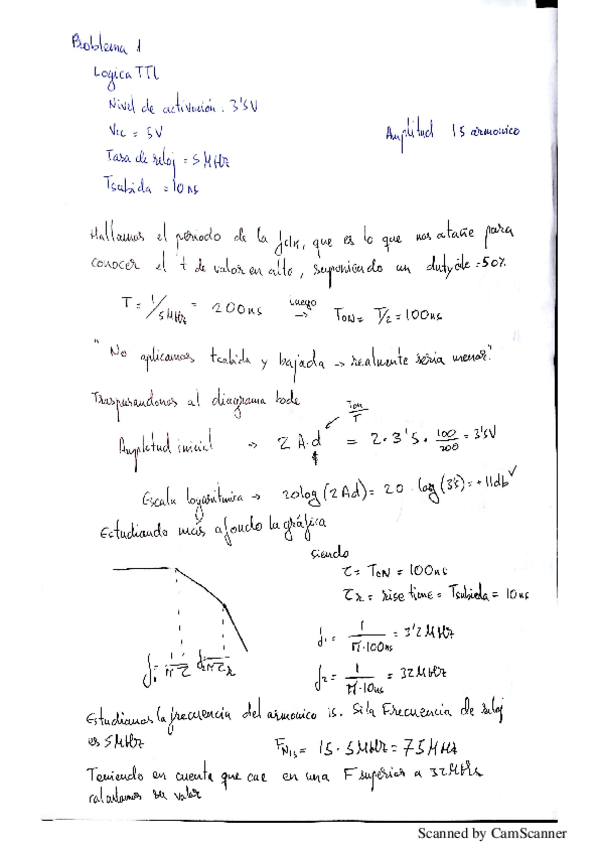 Problema 1
Logica TTL
Nivel de activación. 3'5V
Vcc = 5V
Amplitud 15 armonico
Tasa de reloj = 5 MHz
Tsubida = 10 ns
Hallamos el periodo de la fclk, que es lo que nos atañe para
conocer el t de valor en alto, suponiendo un duty cicle = 50%
T = 1/5MHz = 200ns luego → TON = T/2 = 100ns
"No aplicamos tsubida y bajada → realmente seria menor"
al diagrama bode
Ton/T
Amplitud inicial → 2 A·d = 2·3'5·100/200 = 3'5V
Escala logaritmica → 20log(2Ad) = 20 log(3'5) = +11db ✓
Estudiando más a fondo la gráfica
siendo
τ = TON = 100ns
τr = rise time = Tsubida = 10ns
f1 = 1/(π·100ns) = 3'2 MHz
f1 = 1/πτ f2 = 1/πτr
f2 = 1/(π·10ns) = 32 MHz
Estudiamos la frecuencia del armonico 15. Si la Frecuencia de reloj
es 5MHz FN15 = 15·5MHz = 75MHz
Teniendo en cuenta que cae en una F superior a 32MHz
calculamos su valor
Scanned by CamScanner